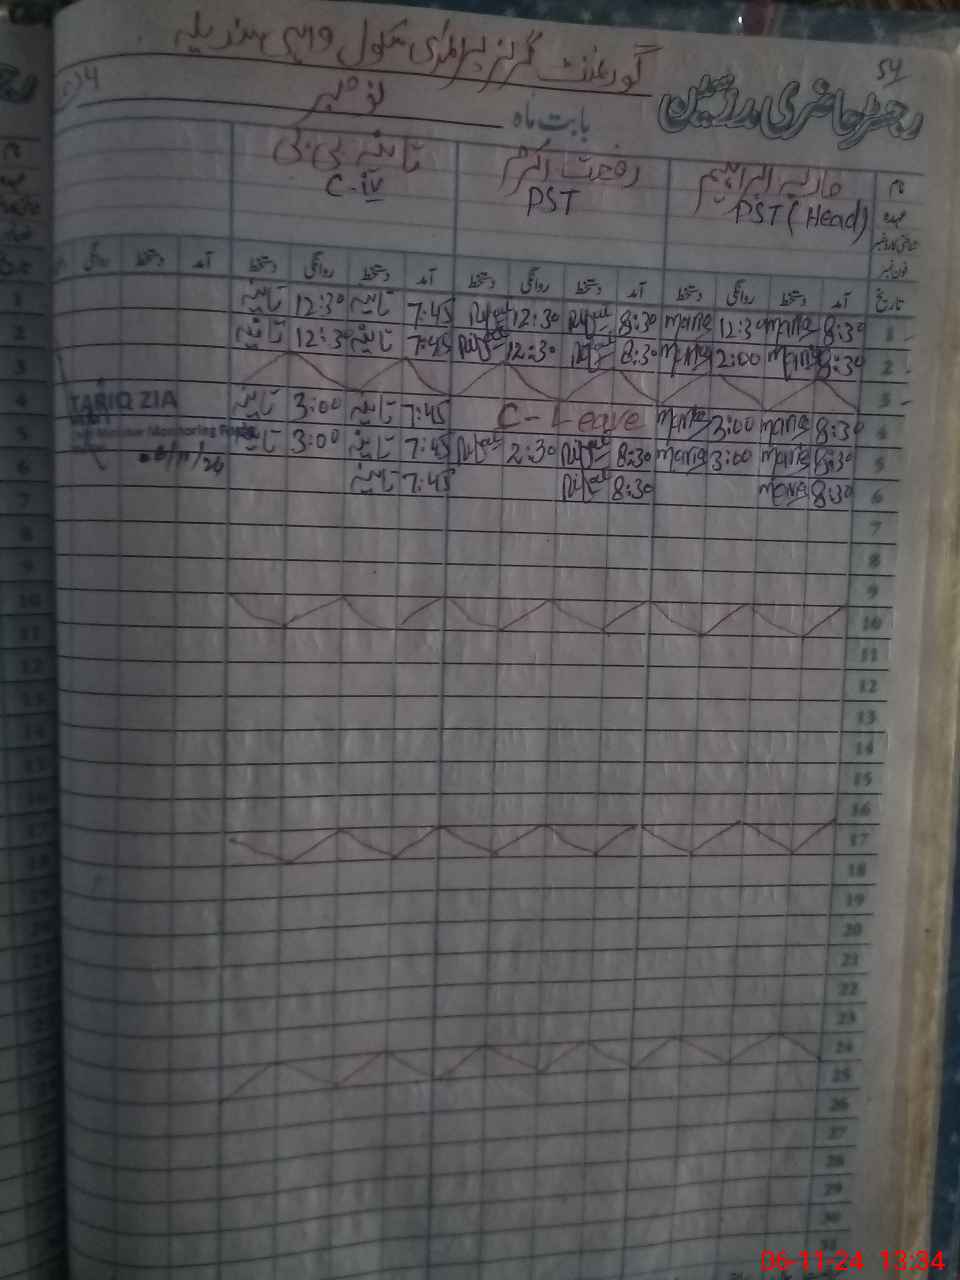 54
گورنمنٹ گرلز پرائمری سکول
رجسٹر حاضری مدرسین
بابت ماہ نومبر
ماریہ ابراہیم رفعت اکرم ثانیہ بی بی
PST (Head) PST C-iv
نام
عہدہ
تاریخ آمد دستخط روانگی دستخط آمد دستخط روانگی دستخط آمد دستخط روانگی دستخط آمد دستخط روانگی
1 8:30 maria 12:30 maria 8:30 Rifat 12:30 Rifat 7:45 ثانیہ 12:30 ثانیہ
2 8:30 maria 2:00 maria 8:30 Rifat 12:30 Rifat 7:45 ثانیہ 12:30 ثانیہ
3
4 8:30 maria 3:00 maria C-Leave 7:45 ثانیہ 3:00 ثانیہ
TARIQ ZIA
5 8:30 maria 3:00 maria 8:30 Rifat 2:30 Rifat 7:45 ثانیہ 3:00 ثانیہ
Monitoring
6 8:30 maria 8:30 Rifat 7:45 ثانیہ
/11/24
7
8
9
10
11
12
13
14
15
16
17
18
19
20
21
22
23
24
25
26
27
28
29
30
31
06-11-24 13:34